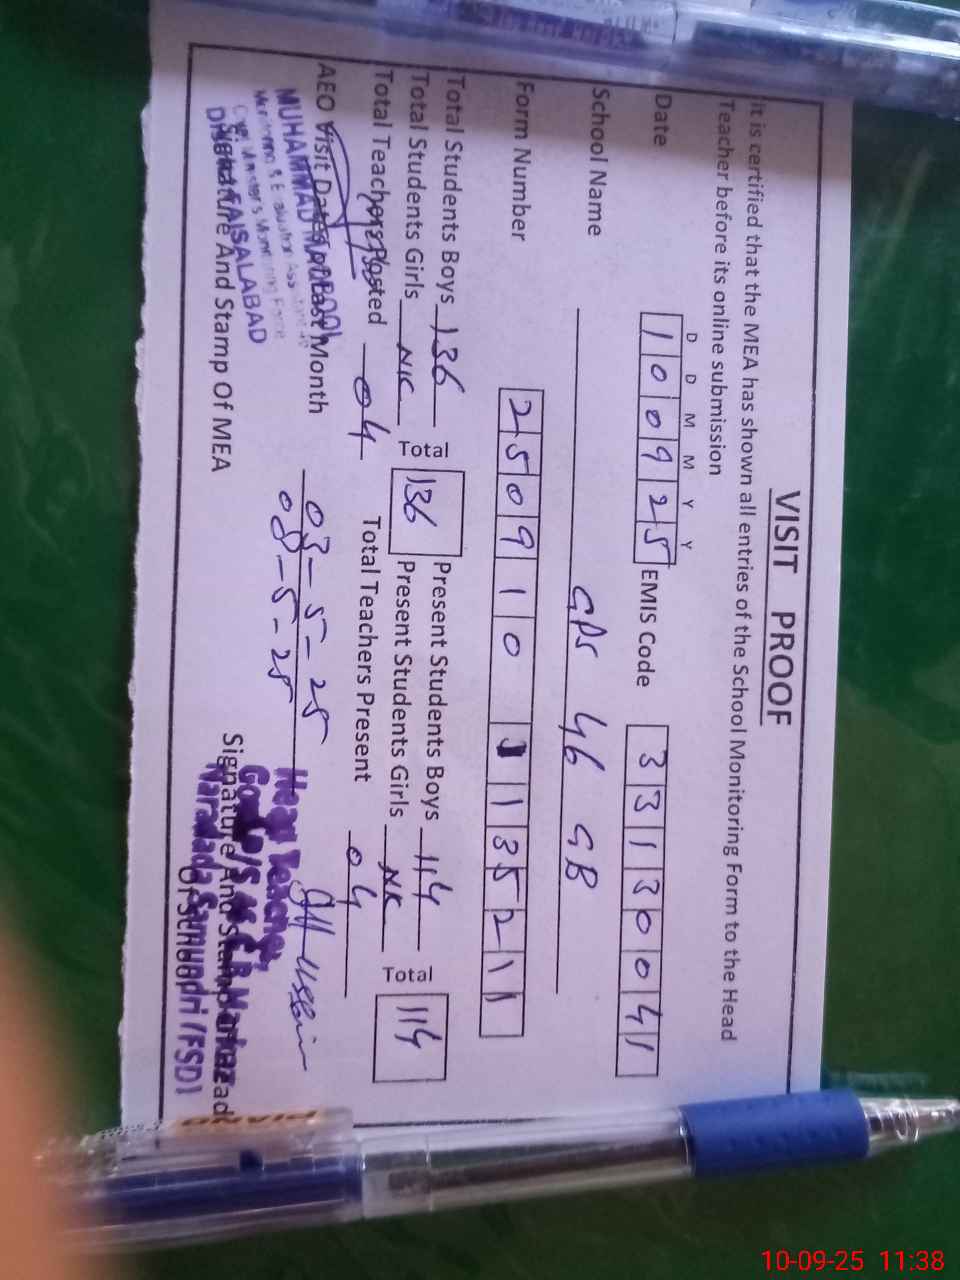 VISIT PROOF
it is certified that the MEA has shown all entries of the School Monitoring Form to the Head
Teacher before its online submission
D D M M Y Y
Date 1 0 0 9 2 5 EMIS Code 3 3 1 3 0 0 4 1
School Name GPS 46 GB
Form Number 2 5 0 9 1 0 1 1 3 5 2 1 1
Total Students Boys 136 Total 136 Present Students Boys 114 Total 114
Total Students Girls NIL Present Students Girls NIL
Total Teachers Posted 04 Total Teachers Present 04
AEO Visit Dates of Last Month 03-5-25
08-5-25
MUHAMMAD MAQBOOL
Monitoring & Evaluation Assistant
Chief Minister's Monitoring Force
FAISALABAD
Signature And Stamp Of MEA
Head Teacher
Govt. P/S 46 G.B.
Samundri (FSD)
Signature And Stamp of Head
10-09-25 11:38